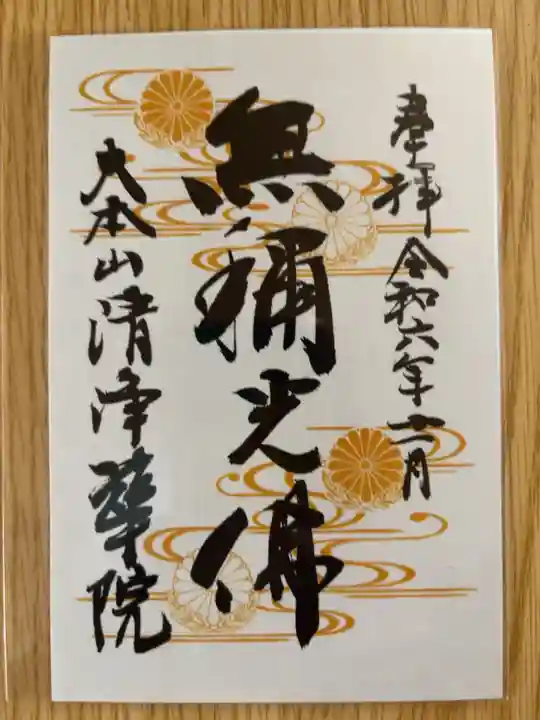 奉拝 令和六年十二月
無称光佛
大本山清浄華院